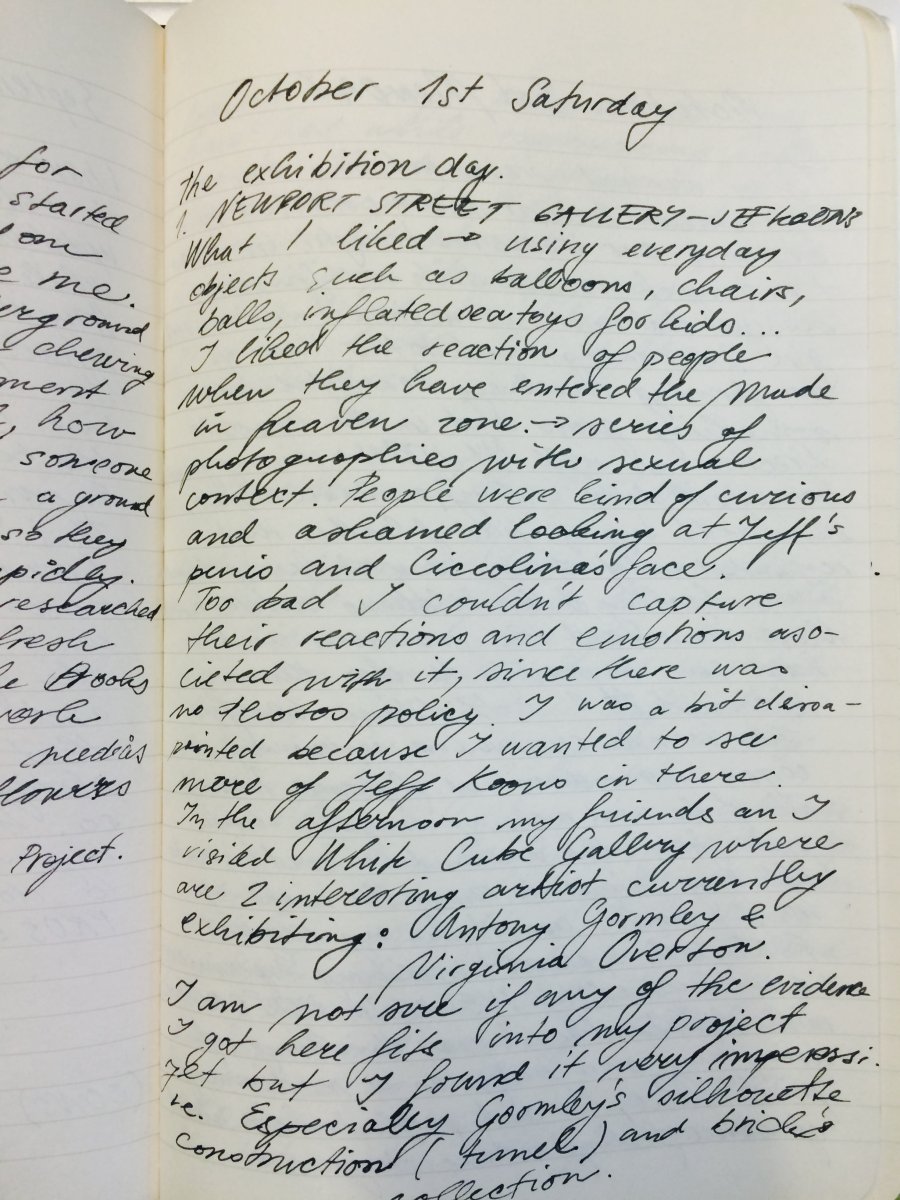 for
started
me.
erground
chewing
ment
how
someone
a ground
so they
researched
fresh
medias
flowers
Project.
October 1st Saturday
the exhibition day.
1. NEWPORT STREET GALLERY – JEF KOONS
What I liked → using everyday
objects such as balloons, chairs,
balls, inflated sea toys for kids...
I liked the reaction of people
when they have entered the Made
in heaven zone. → series of
photographies with sexual
context. People were kind of curious
and ashamed looking at Jeff's
penis and Ciccolina's face.
Too bad I couldn't capture
their reactions and emotions aso-
cieted with it, since there was
no photos policy. I was a bit dissa-
pointed because I wanted to see
more of Jeff Koons in there.
In the afternoon my friends an I
visited White Cube Gallery where
are 2 interesting artist currently
exhibiting: Antony Gormley &
Virginia Overton.
I am not sure if any of the evidence
I got here fits into my project
yet but I found it very impressi-
ve. Especially Gormley's silhouette
construction (tunnel) and brick's
collection.